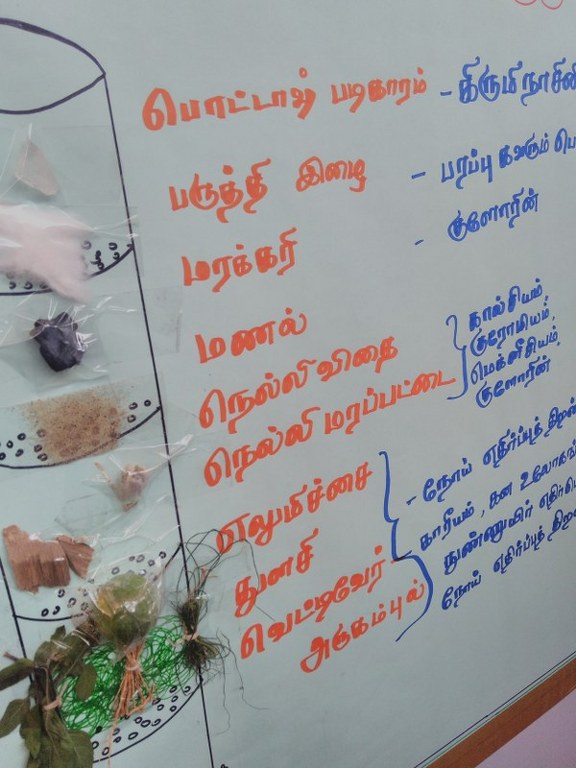 பொட்டாஷ் படிகாரம் - கிருமிநாசினி
பருத்தி இழை - பரப்பு கவரும்
மரக்கரி - குளோரின்
மணல்
நெல்லி விதை
நெல்லி மரப்பட்டை
கால்சியம்,
குரோமியம்,
மெக்னீசியம்,
குளோரின்
எலுமிச்சை
துளசி
வெட்டிவேர்
அருகம்புல்
- நோய் எதிர்ப்புத் திறன்
காரீயம், கன உலோகங்
நுண்ணுயிர்
நோய் எதிர்ப்புத் திறன்